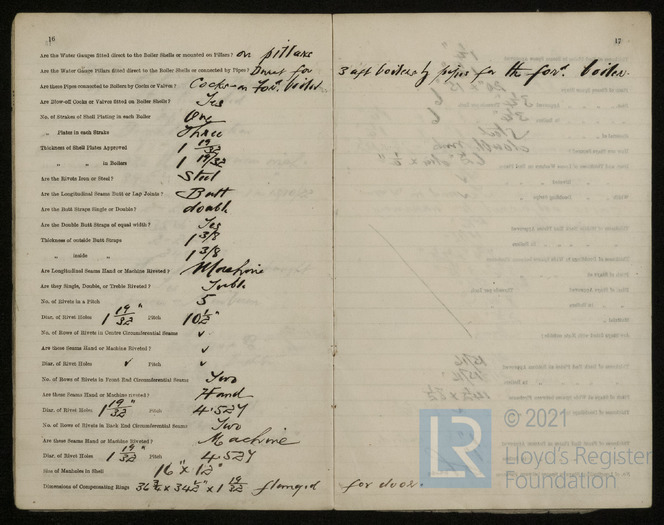 16
Are the Water Gauges fitted direct to the Boiler Shells or mounted on Pillars? on pillars
Are the Water Gauge Pillars fitted direct to the Boiler Shells or connected by Pipes? Direct for 3 aft boilers by pipes for the for'. boiler.
Are these Pipes connected to Boilers by Cocks or Valves? Cocks on For'. boiler
Are Blow-off Cocks or Valves fitted on Boiler Shells? Yes
No. of Strakes of Shell Plating in each Boiler One
„ Plates in each Strake Three
Thickness of Shell Plates Approved 1 19/32
„ „ in Boilers 1 19/32
Are the Rivets Iron or Steel? Steel
Are the Longitudinal Seams Butt or Lap Joints? Butt
Are the Butt Straps Single or Double? double
Are the Double Butt Straps of equal width? Yes
Thickness of outside Butt Straps 1 3/8
„ inside „ 1 3/8
Are Longitudinal Seams Hand or Machine Riveted? Machine
Are they Single, Double, or Treble Riveted? Treble
No. of Rivets in a Pitch 5
Diar. of Rivet Holes 1 19/32" Pitch 10 1/2"
No. of Rows of Rivets in Centre Circumferential Seams ✓
Are these Seams Hand or Machine Riveted? ✓
Diar. of Rivet Holes ✓ Pitch ✓
No. of Rows of Rivets in Front End Circumferential Seams Two
Are these Seams Hand or Machine riveted? Hand
Diar. of Rivet Holes 1 19/32" Pitch 4.527
No. of Rows of Rivets in Back End Circumferential Seams Two
Are these Seams Hand or Machine Riveted? Machine
Diar. of Rivet Holes 1 19/32" Pitch 4.527
Size of Manholes in Shell 16" x 12"
Dimensions of Compensating Rings 36 3/4 x 34 1/2" x 1 19/32 flanged for door.
17
LR
© 2021
Lloyd's Register
Foundation